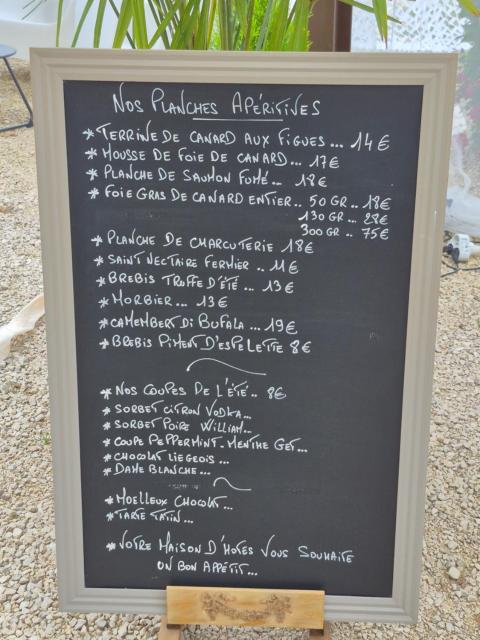 NOS PLANCHES APÉRITIVES
* TERRINE DE CANARD AUX FIGUES... 14€
* MOUSSE DE FOIE DE CANARD... 17€
* PLANCHE DE SAUMON FUMÉ.. 18€
* FOIE GRAS DE CANARD ENTIER.. 50 GR.. 18€
130 GR... 28€
300 GR.. 75€
* PLANCHE DE CHARCUTERIE 18€
* SAINT NECTAIRE FERMIER .. 11€
* BREBIS TRUFFE D'ÉTÉ... 13€
* MORBIER... 13€
* CAMEMBERT DI BUFALA... 19€
* BREBIS PIMENT D'ESPELETTE 8€
* NOS COUPES DE L'ÉTÉ.. 8€
* SORBET CITRON VODKA...
* SORBET POIRE WILLIAM...
* COUPE PEPPERMINT. MENTHE GET...
* CHOCOLAT LIEGEOIS...
* DAME BLANCHE...
* MOELLEUX CHOCOLAT...
* TARTE TATIN...
* VOTRE MAISON D'HOTES VOUS SOUHAITE
UN BON APPÉTIT...